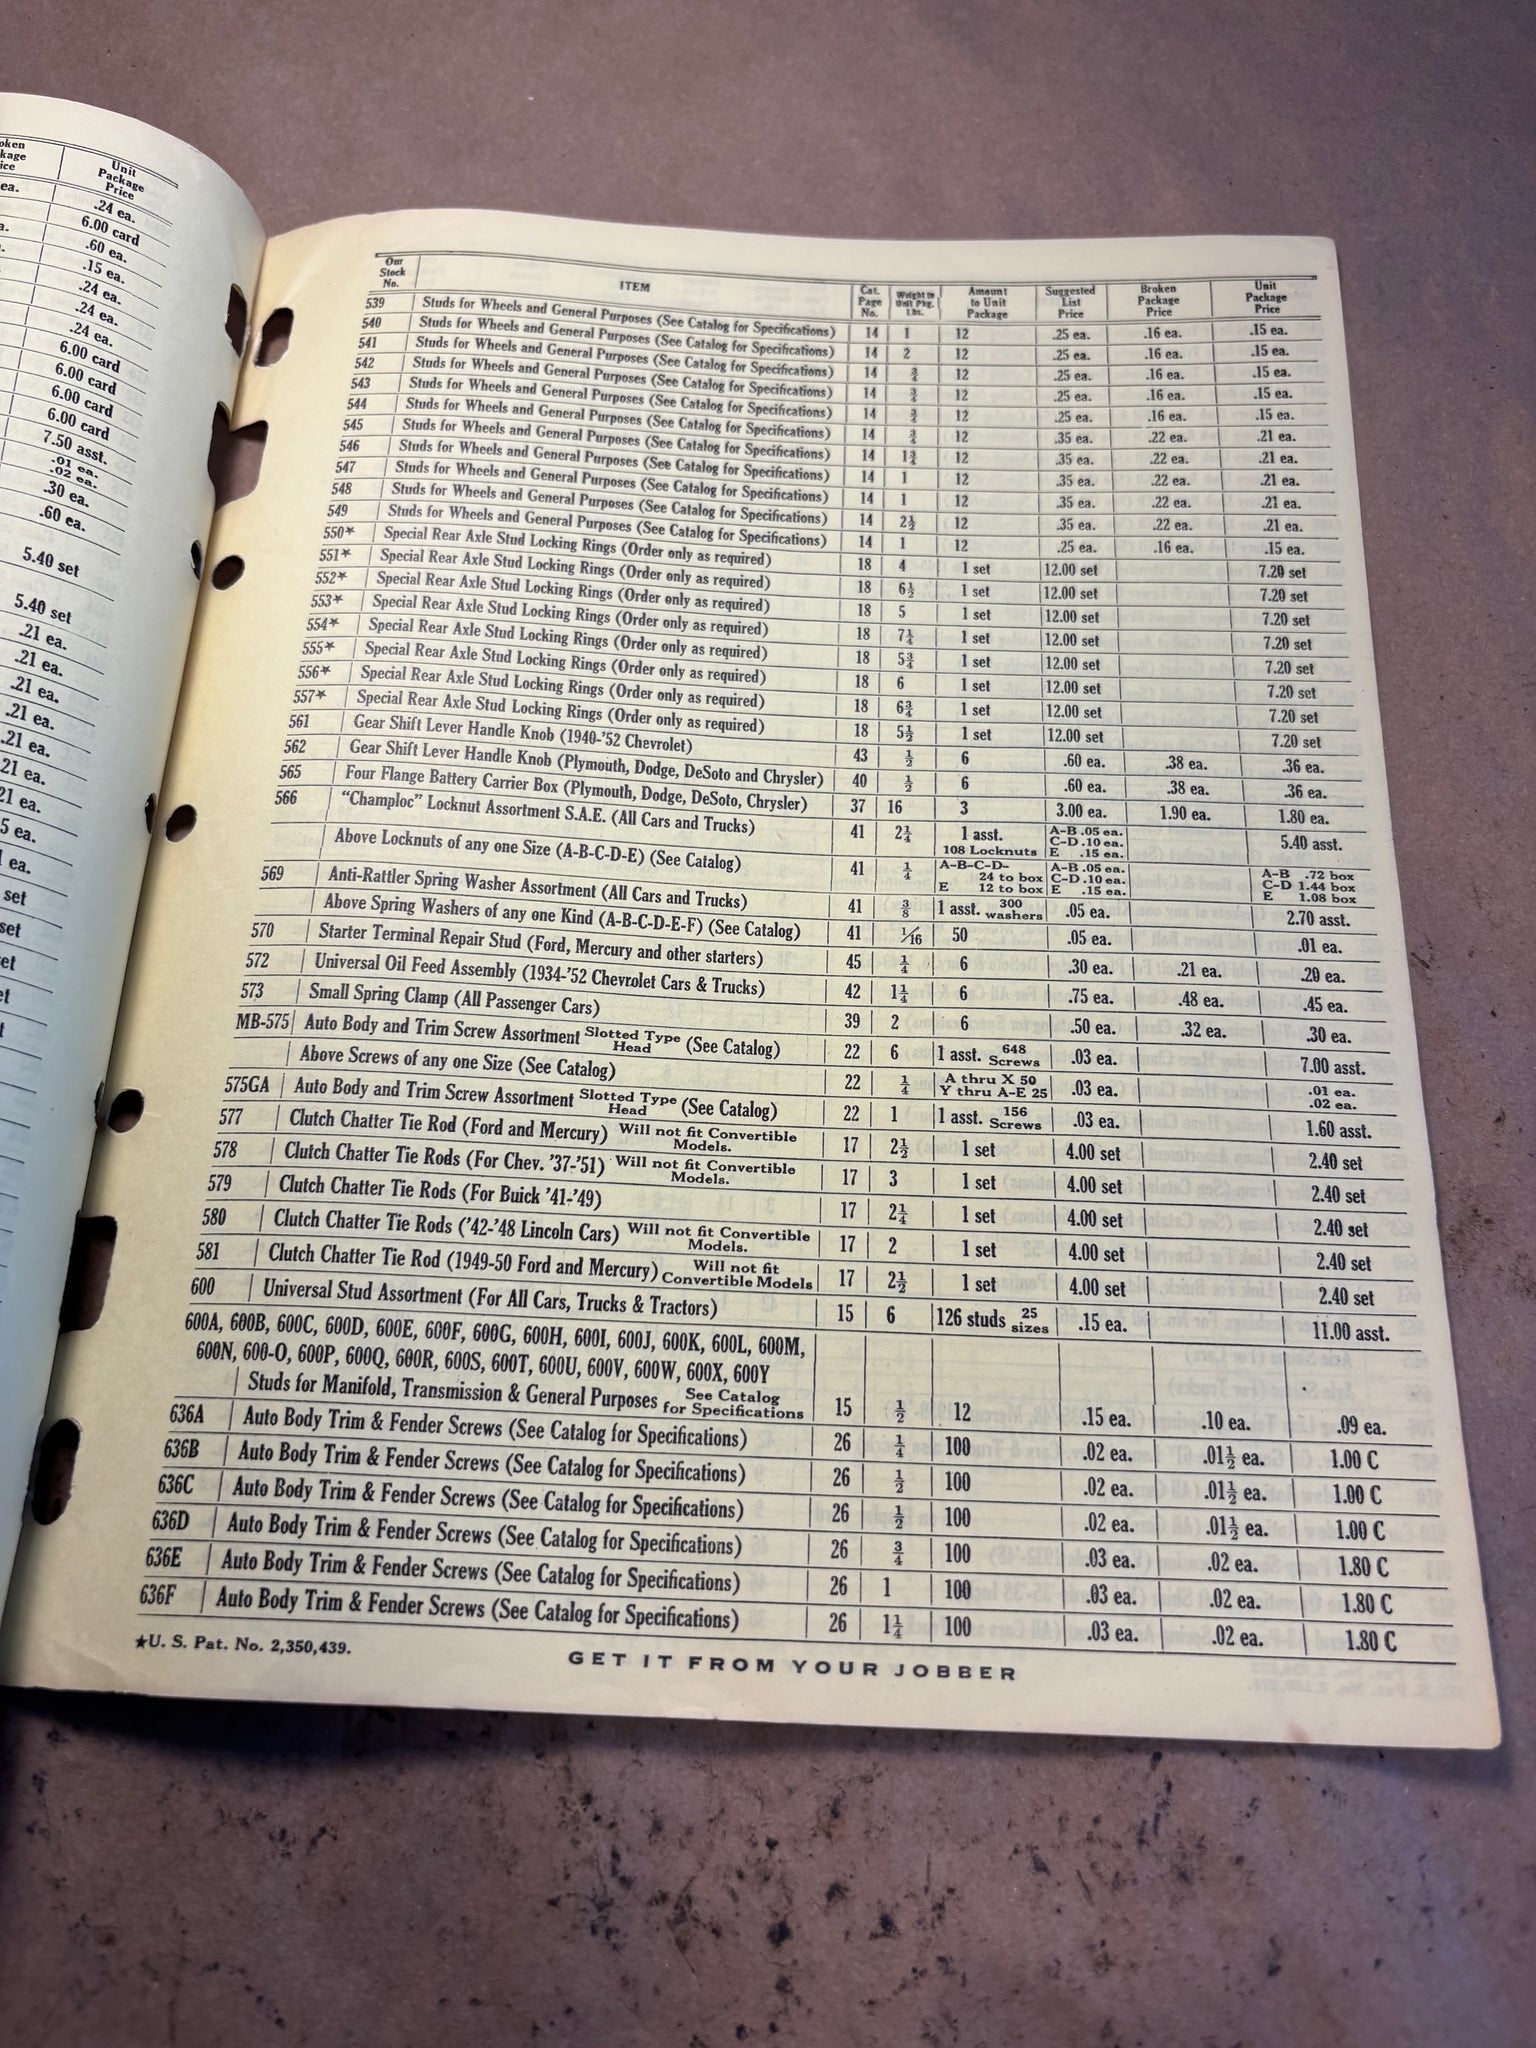 oken Unit
kage Package
ice Price
ea. .24 ea.
6.00 card
a. .60 ea.
.15 ea.
.24 ea.
.24 ea.
.24 ea.
6.00 card
6.00 card
6.00 card
6.00 card
7.50 asst.
.01 ea.
.02 ea.
.30 ea.
.60 ea.
5.40 set
5.40 set
.21 ea.
.21 ea.
.21 ea.
.21 ea.
.21 ea.
.21 ea.
21 ea.
5 ea.
ea.
set
set
et
et
t
Our Stock No. ITEM Cat. Page No. Weight to Unit Pkg. Lbs. Amount to Unit Package Suggested List Price Broken Package Price Unit Package Price
539 Studs for Wheels and General Purposes (See Catalog for Specifications) 14 1 12 .25 ea. .16 ea. .15 ea.
540 Studs for Wheels and General Purposes (See Catalog for Specifications) 14 2 12 .25 ea. .16 ea. .15 ea.
541 Studs for Wheels and General Purposes (See Catalog for Specifications) 14 ¾ 12 .25 ea. .16 ea. .15 ea.
542 Studs for Wheels and General Purposes (See Catalog for Specifications) 14 ¾ 12 .25 ea. .16 ea. .15 ea.
543 Studs for Wheels and General Purposes (See Catalog for Specifications) 14 ¾ 12 .25 ea. .16 ea. .15 ea.
544 Studs for Wheels and General Purposes (See Catalog for Specifications) 14 ¾ 12 .35 ea. .22 ea. .21 ea.
545 Studs for Wheels and General Purposes (See Catalog for Specifications) 14 1¾ 12 .35 ea. .22 ea. .21 ea.
546 Studs for Wheels and General Purposes (See Catalog for Specifications) 14 1 12 .35 ea. .22 ea. .21 ea.
547 Studs for Wheels and General Purposes (See Catalog for Specifications) 14 1 12 .35 ea. .22 ea. .21 ea.
548 Studs for Wheels and General Purposes (See Catalog for Specifications) 14 2½ 12 .35 ea. .22 ea. .21 ea.
549 Studs for Wheels and General Purposes (See Catalog for Specifications) 14 1 12 .25 ea. .16 ea. .15 ea.
550★ Special Rear Axle Stud Locking Rings (Order only as required) 18 4 1 set 12.00 set 7.20 set
551★ Special Rear Axle Stud Locking Rings (Order only as required) 18 6½ 1 set 12.00 set 7.20 set
552★ Special Rear Axle Stud Locking Rings (Order only as required) 18 5 1 set 12.00 set 7.20 set
553★ Special Rear Axle Stud Locking Rings (Order only as required) 18 7¼ 1 set 12.00 set 7.20 set
554★ Special Rear Axle Stud Locking Rings (Order only as required) 18 5¾ 1 set 12.00 set 7.20 set
555★ Special Rear Axle Stud Locking Rings (Order only as required) 18 6 1 set 12.00 set 7.20 set
556★ Special Rear Axle Stud Locking Rings (Order only as required) 18 6¾ 1 set 12.00 set 7.20 set
557★ Special Rear Axle Stud Locking Rings (Order only as required) 18 5½ 1 set 12.00 set 7.20 set
561 Gear Shift Lever Handle Knob (1940-'52 Chevrolet) 43 ½ 6 .60 ea. .38 ea. .36 ea.
562 Gear Shift Lever Handle Knob (Plymouth, Dodge, DeSoto and Chrysler) 40 ½ 6 .60 ea. .38 ea. .36 ea.
565 Four Flange Battery Carrier Box (Plymouth, Dodge, DeSoto, Chrysler) 37 16 3 3.00 ea. 1.90 ea. 1.80 ea.
566 "Champloc" Locknut Assortment S.A.E. (All Cars and Trucks) 41 2¼ 1 asst. 108 Locknuts A-B .05 ea. C-D .10 ea. E .15 ea. 5.40 asst.
Above Locknuts of any one Size (A-B-C-D-E) (See Catalog) 41 ¼ A-B-C-D- 24 to box E 12 to box A-B .05 ea. C-D .10 ea. E .15 ea. A-B .72 box C-D 1.44 box E 1.08 box
569 Anti-Rattler Spring Washer Assortment (All Cars and Trucks) 41 ⅜ 1 asst. 300 washers .05 ea. 2.70 asst.
Above Spring Washers of any one Kind (A-B-C-D-E-F) (See Catalog) 41 1/16 50 .05 ea. .01 ea.
570 Starter Terminal Repair Stud (Ford, Mercury and other starters) 45 ¼ 6 .30 ea. .21 ea. .20 ea.
572 Universal Oil Feed Assembly (1934-'52 Chevrolet Cars & Trucks) 42 1¼ 6 .75 ea. .48 ea. .45 ea.
573 Small Spring Clamp (All Passenger Cars) 39 2 6 .50 ea. .32 ea. .30 ea.
MB-575 Auto Body and Trim Screw Assortment Slotted Type Head (See Catalog) 22 6 1 asst. 648 Screws .03 ea. 7.00 asst.
Above Screws of any one Size (See Catalog) 22 ¼ A thru X 50 Y thru A-E 25 .03 ea. .01 ea. .02 ea.
575GA Auto Body and Trim Screw Assortment Slotted Type Head (See Catalog) 22 1 1 asst. 156 Screws .03 ea. 1.60 asst.
577 Clutch Chatter Tie Rod (Ford and Mercury) Will not fit Convertible Models. 17 2½ 1 set 4.00 set 2.40 set
578 Clutch Chatter Tie Rods (For Chev. '37-'51) Will not fit Convertible Models. 17 3 1 set 4.00 set 2.40 set
579 Clutch Chatter Tie Rods (For Buick '41-'49) 17 2¼ 1 set 4.00 set 2.40 set
580 Clutch Chatter Tie Rods ('42-'48 Lincoln Cars) Will not fit Convertible Models. 17 2 1 set 4.00 set 2.40 set
581 Clutch Chatter Tie Rod (1949-50 Ford and Mercury) Will not fit Convertible Models 17 2½ 1 set 4.00 set 2.40 set
600 Universal Stud Assortment (For All Cars, Trucks & Tractors) 15 6 126 studs 25 sizes .15 ea. 11.00 asst.
600A, 600B, 600C, 600D, 600E, 600F, 600G, 600H, 600I, 600J, 600K, 600L, 600M,
600N, 600-O, 600P, 600Q, 600R, 600S, 600T, 600U, 600V, 600W, 600X, 600Y
Studs for Manifold, Transmission & General Purposes See Catalog for Specifications 15 ½ 12 .15 ea. .10 ea. .09 ea.
636A Auto Body Trim & Fender Screws (See Catalog for Specifications) 26 ¼ 100 .02 ea. .01½ ea. 1.00 C
636B Auto Body Trim & Fender Screws (See Catalog for Specifications) 26 ½ 100 .02 ea. .01½ ea. 1.00 C
636C Auto Body Trim & Fender Screws (See Catalog for Specifications) 26 ½ 100 .02 ea. .01½ ea. 1.00 C
636D Auto Body Trim & Fender Screws (See Catalog for Specifications) 26 ¾ 100 .03 ea. .02 ea. 1.80 C
636E Auto Body Trim & Fender Screws (See Catalog for Specifications) 26 1 100 .03 ea. .02 ea. 1.80 C
636F Auto Body Trim & Fender Screws (See Catalog for Specifications) 26 1¼ 100 .03 ea. .02 ea. 1.80 C
★U. S. Pat. No. 2,350,439.
GET IT FROM YOUR JOBBER